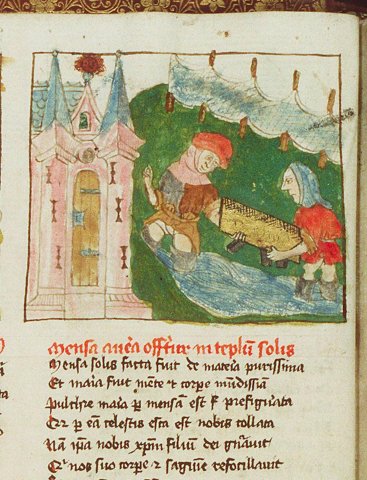 Mensa aurea offertur in teplū solis
Mensa solis facta fuit de materia purissima
Et maria fuit mente et corpe mūdissia
Pulchre maria p mensam est prefigurata
p eā celestis esca est nobis collata
Nā ipa nobis xpm filium dei genuit
Qui nos suo corpe ⁊ sagwine refocillauit